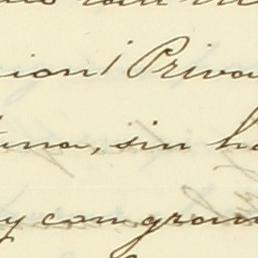 nion Priva
una, sin ha
y con gran